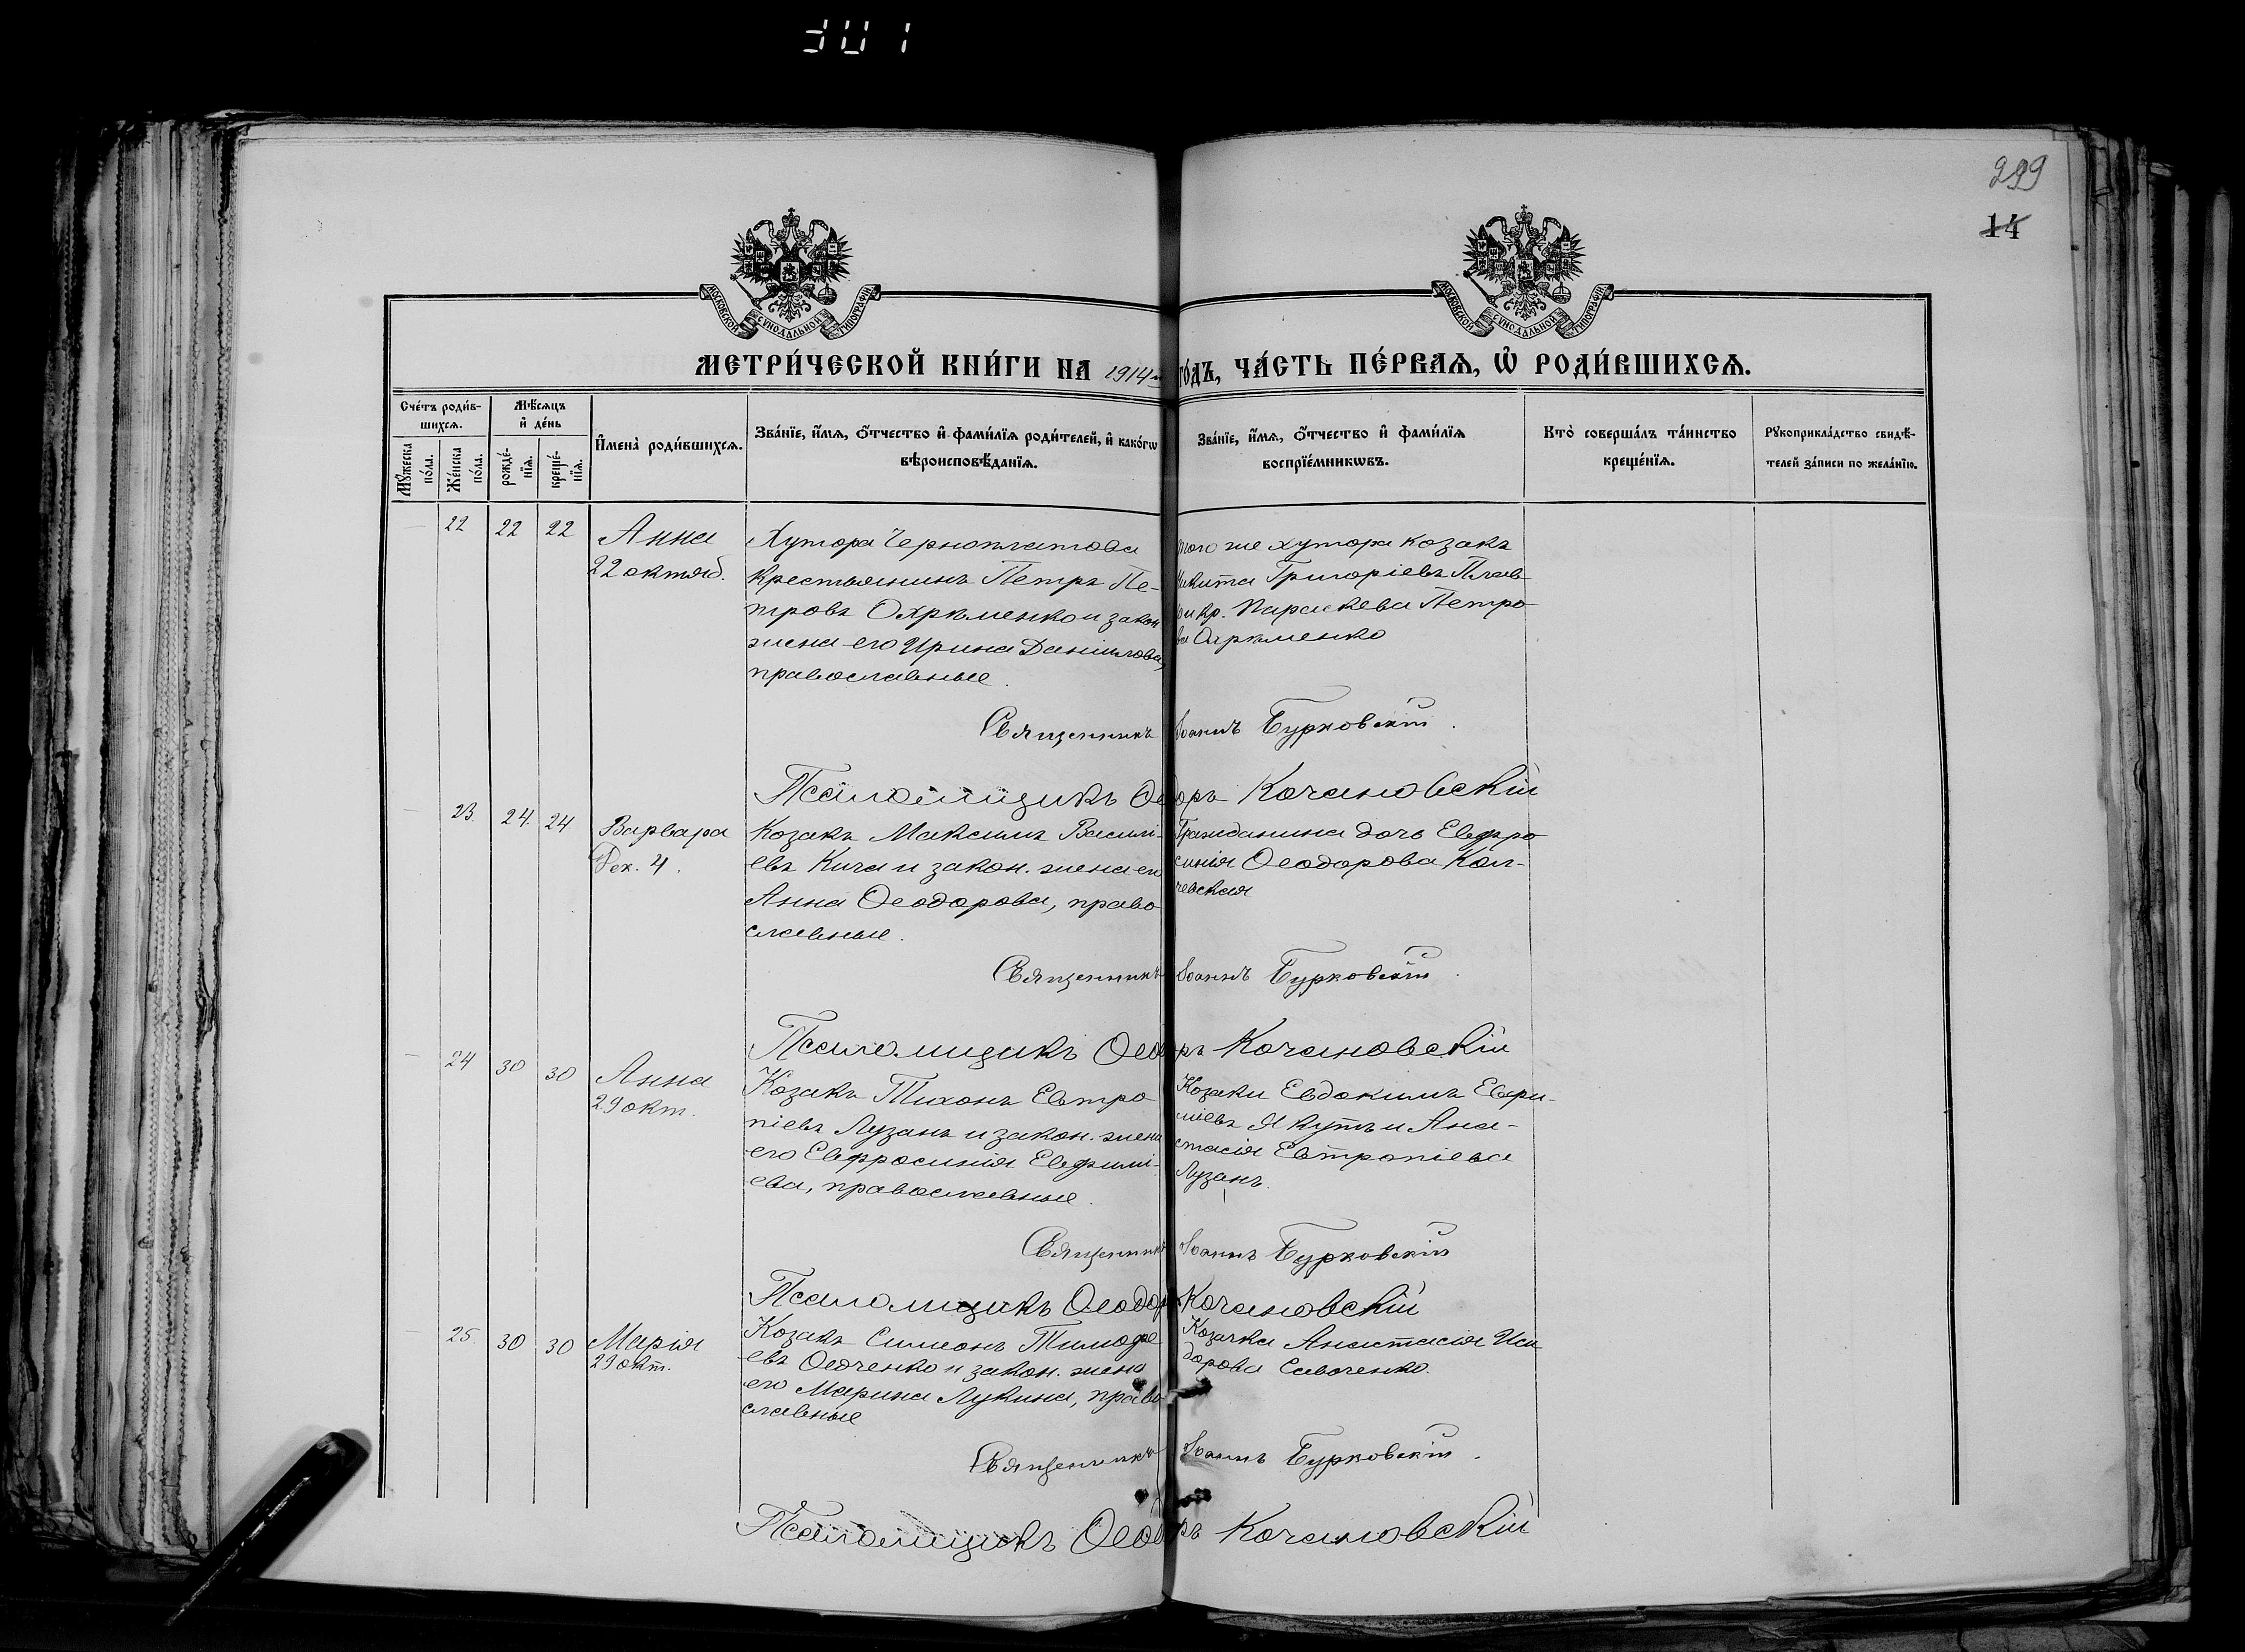 301
299
14
МОСКОВСКОЙ СѴНОДАЛЬНОЙ ТИПОГРАФІИ
МОСКОВСКОЙ СѴНОДАЛЬНОЙ ТИПОГРАФІИ
МЕТРИ́ЧЕСКОЙ КНИ́ГИ НА 1914 ГО́ДЪ, ЧА́СТЬ ПЕ́РВАѦ, Ѽ РОДИ́ВШИХСѦ.
Сче́тъ роди́в-
шихсѧ.
Мꙋжеска по́ла.
Же́нска по́ла.
Мѣ́сѧцъ
и҆ де́нь
рожде́-
нїѧ.
креще́-
нїѧ.
И҆мена̀ роди́вшихсѧ.
Зва́нїе, и҆́мѧ, ѻ҆́тчество и҆ фами́лїѧ роди́телей, и҆ како́гѡ
вѣроисповѣ́данїѧ.
Зва́нїе, и҆́мѧ, ѻ҆́тчество и҆ фами́лїѧ
воспрїе́мникѡвъ.
Кто̀ соверша́лъ та́инство
креще́нїѧ.
Рꙋкоприкла́дство свидѣ́-
телей за́писи по жела́нїю.
22 22 22 Анна
22 октяб.
Хутора Черноплатова
крестьянинъ Петръ Пе-
тровъ Охрименко и закон
жена его Ирина Данiилова,
православные.
того же хутора козакъ
Никита Григорiевъ
и кр. Параскева Петро
ва Охрименко
Священникъ Іоаннъ Бурковскiй.
Псаломщикъ Ѳеодоръ Кочановскiй
23. 24. 24. Варвара
Дек. 4.
Козакъ Максимъ Василi-
евъ Кича и закон. жена его
Анна Ѳеодорова, право
славные.
Гражданина дочь Евфро
синiя Ѳеодорова Кол-
чевская
Священникъ Іоаннъ Бурковскiй.
Псаломщикъ Ѳеодоръ Кочановскiй
24 30 30 Анна
29 окт.
Козакъ Тихонъ Евтро
пiевъ Лузанъ и закон. жена
его Евфросинiя Евфимi-
ева, православные.
Козаки Евдокимъ Евфи-
мiевъ Якутъ и Ана-
стасiя Евтропiева
Лузанъ.
Священникъ Іоаннъ Бурковскiй
Псаломщикъ Ѳеодоръ Кочановскiй
25. 30 30 Марiя
29 окт.
Козакъ Симеонъ Тимофе
евъ и закон. жена
его Марина Лукина, право
славные
Козачка Анастасiя Иси
дорова Савченко.
Священникъ Іоаннъ Бурковскiй.
Псаломщикъ Ѳеодоръ Кочановскiй